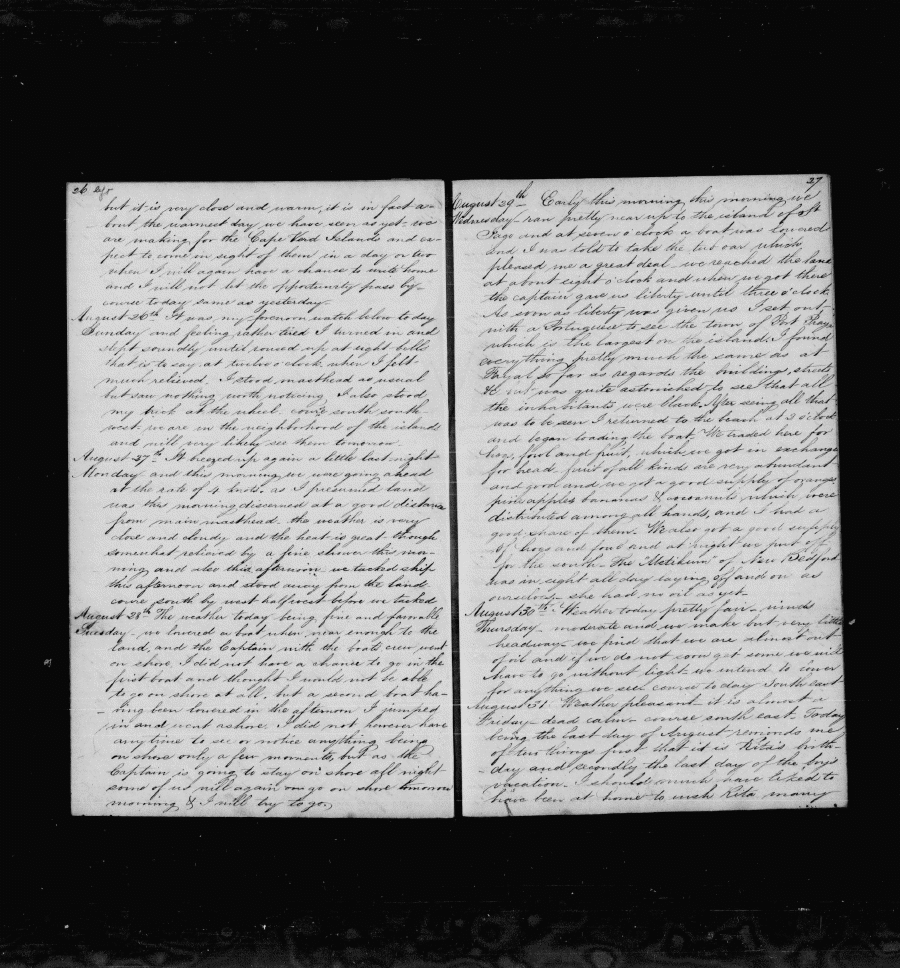 26
but it is very close and warm, it is in fact a-
bout the warmest day we have seen as yet - we
are making for the Cape Verd Islands and ex-
pect to come in sight of them in a day or two
when I will again have a chance to write home
and I will not let the opportunity pass by -
course today same as yesterday.
August 26th It was my forenoon watch below today
Sunday and feeling rather tired I turned in and
slept soundly until roused up at eight bells
that is to say at twelve o'clock when I felt
much relieved. I stood masthead as usual
but saw nothing worth noticing I also stood
my trick at the wheel. course south south-
west. we are in the neighborhood of the islands
and will very likely see them tomorrow.
August 27th It breezed up again a little last night
Monday and this morning we were going ahead
at the rate of 4 knots. as I presumed land
was this morning discerned at a good distance
from main masthead. the weather is very
close and cloudy and the heat is great though
somewhat relieved by a fine shower this mor-
ning and also this afternoon. we tacked ship
this afternoon and stood away from the land.
course south by west half west before we tacked
August 28th The weather today being fine and favorable
Tuesday - we lowered a boat when near enough to the
land, and the Captain with the boats crew went
on shore, I did not have a chance to go in the
first boat and thought I would not be able
to go on shore at all, but a second boat ha-
ving been lowered in the afternoon I jumped
in and went ashore. I did not however have
any time to see or notice anything being
on shore only a few moments, but as the
Captain is going to stay on shore all night
some of us will again go on shore tomorrow
morning & I will try to go.
27
August 29th Early this morning this morning we
Wednesday - ran pretty near up to the island of St
Iago and at seven o'clock a boat was lowered
and I was told to take the tub oar which
pleased me a great deal - we reached the land
at about eight o'clock and when we got there
the captain gave us liberty until three o'clock
As soon as liberty was given us I set out
with a Portuguese to see the town of Port Praya
which is the largest on the island. I found
everything pretty much the same as at
Fayal so far as regards the buildings, streets,
&c was quite astonished to see that all
the inhabitants were black. After seeing all that
was to be seen I returned to the beach at 2 o'clock
and began loading the boat. We traded here for
hogs, fowl and fruit, which we got in exchange
for bread, fruit of all kinds are very abundant
and good and we got a good supply of oranges
pine apples bananas & cocoanuts which were
distributed among all hands, and I had a
good share of them. We also got a good supply
of hogs and fowl and at night we put off
for the south - the of New Bedford
was in sight all day laying off and on as
ourselves - she had no oil as yet -
August 30th Weather today pretty fair - winds
Thursday - moderate and we make but very little
headway - we find that we are almost out
of oil and if we do not soon get some we will
have to go without light - we intend to lower
for anything we see. course today South east
August 31 Weather pleasant - it is almost a
Friday - dead calm - course south east. Today
being the last day of August reminds me
of two things first that it is Rita's birth-
day and secondly the last day of the boy's
vacation. I should much have liked to
have been at home to wish Rita many